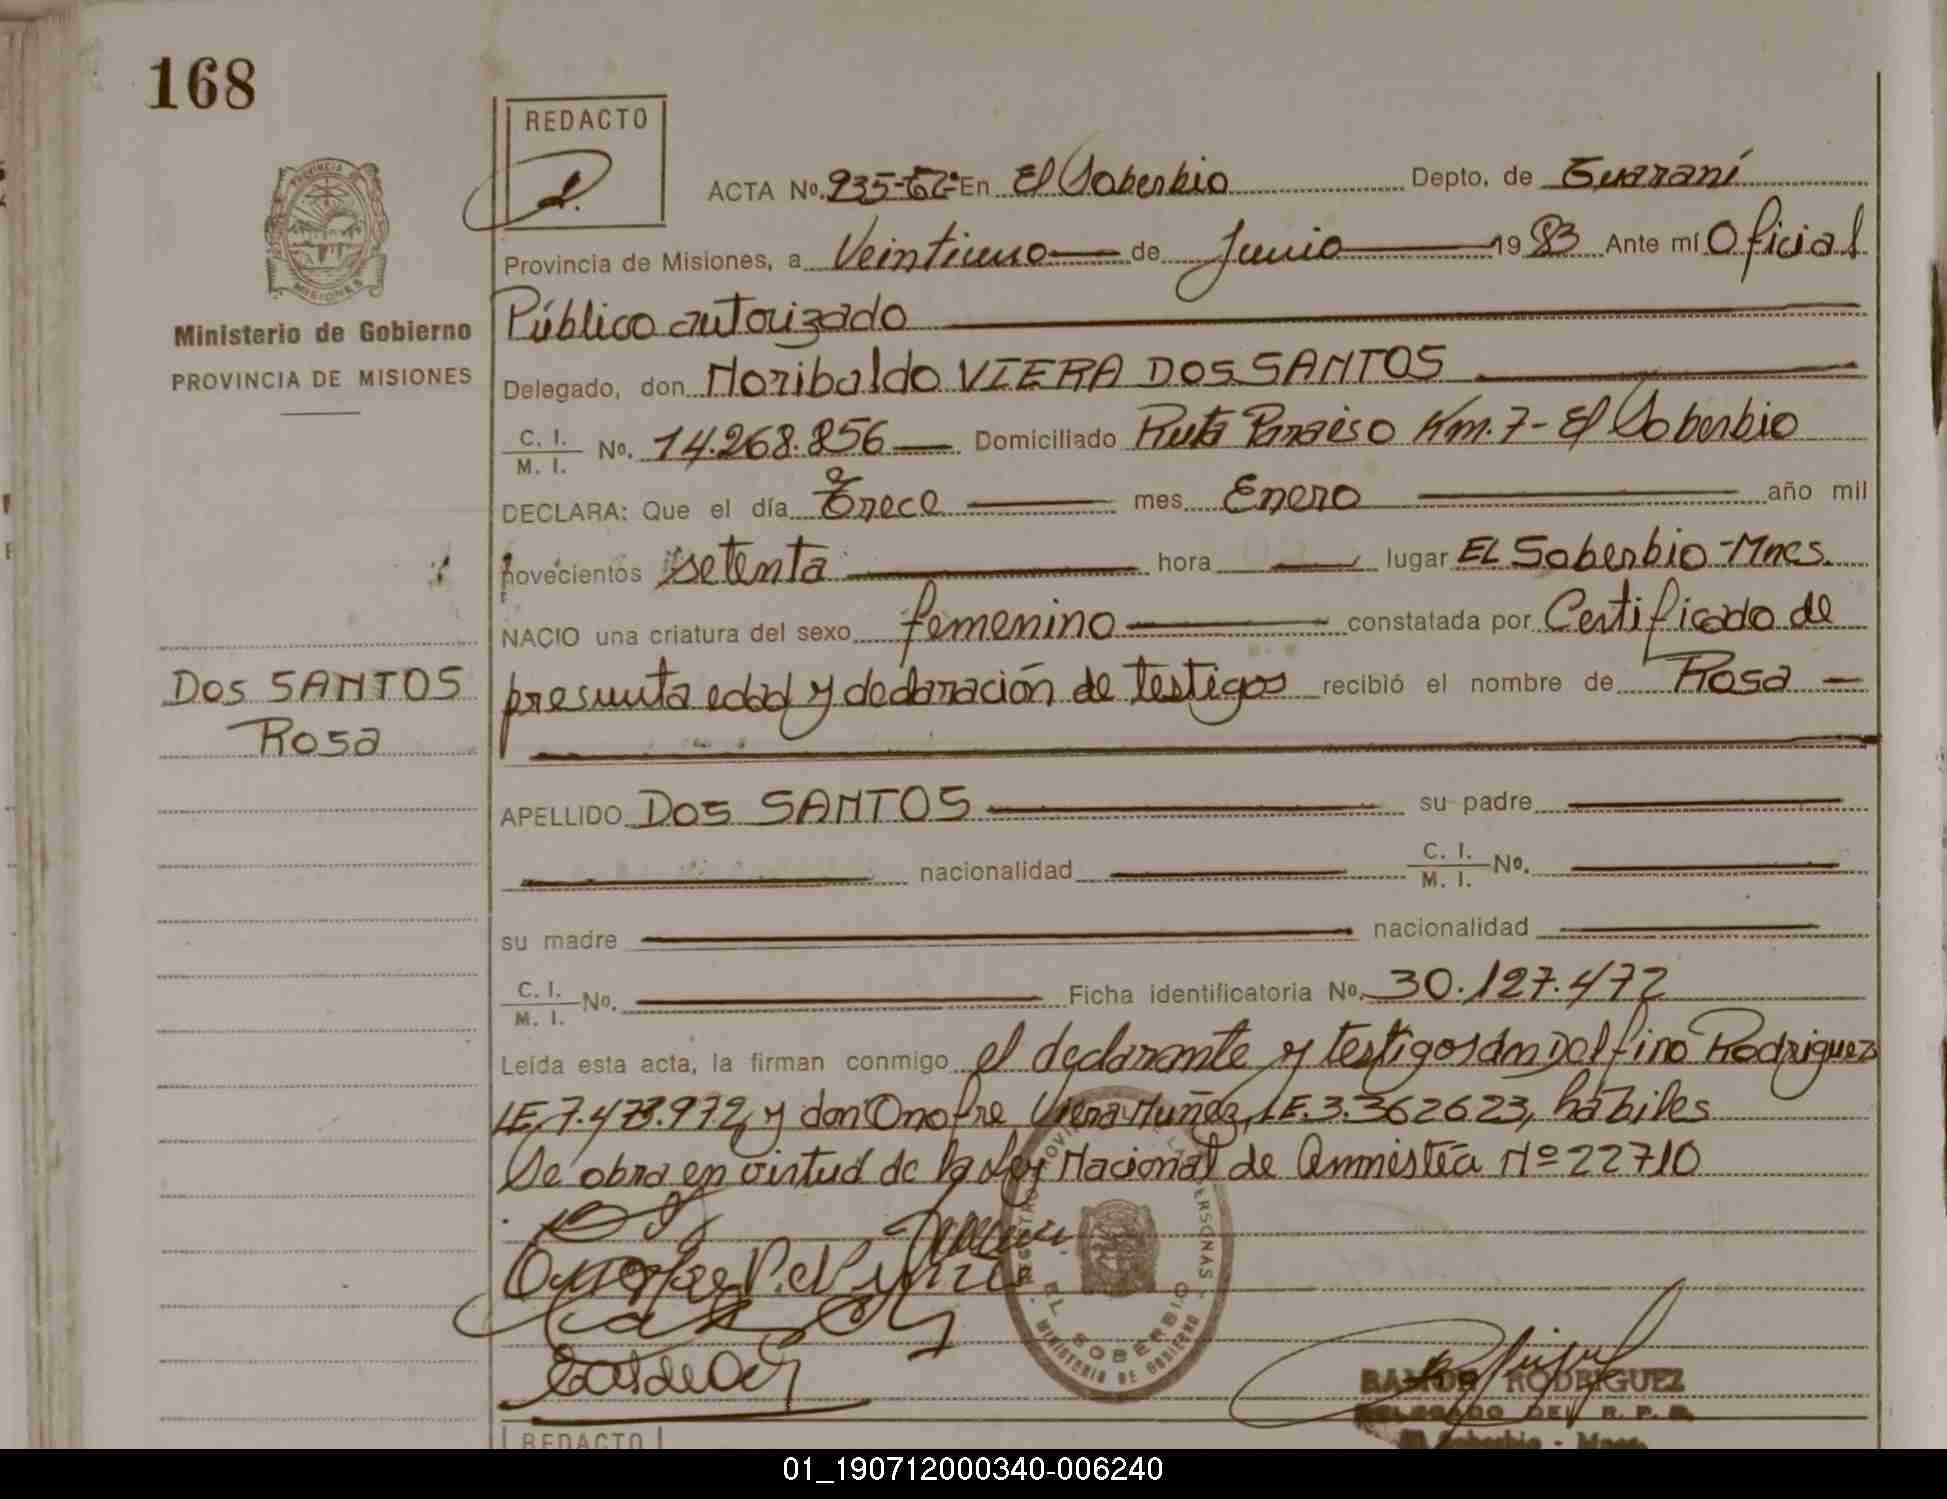 168
REDACTO
ACTA No. 935-T2º En El Soberbio Depto. de Guaraní
Provincia de Misiones, a Veintiuno de Junio 1983 Ante mí Oficial
Público autorizado
Ministerio de Gobierno
PROVINCIA DE MISIONES
Delegado, don Noribaldo VIERA DOS SANTOS
C. I. / M. I. No. 14.268.856 Domiciliado Ruta Paraiso Km. 7- El Soberbio
DECLARA: Que el día Trece mes Enero año mil
novecientos setenta hora lugar EL Soberbio-Mnes.
NACIO una criatura del sexo femenino constatada por Certificado de
presunta edad y declaración de testigos recibió el nombre de Rosa
DOS SANTOS
Rosa
APELLIDO DOS SANTOS su padre
nacionalidad C. I. / M. I. No.
su madre nacionalidad
C. I. / M. I. No. Ficha identificatoria No. 30.127.472
Leída esta acta, la firman conmigo el declarante y testigos dn Delfino Rodriguez
LE.7.473.972 y don Onofre Viera Muñez, LE.3.362623, hábiles
Se obra en virtud de la Ley Nacional de Amnistía Nº 22710
EL SOBERBIO
MINISTERIO DE GOBIERNO
RAMON RODRIGUEZ
DELEGADO DEL R. P. P.
El Soberbio - Mnes.
REDACTO
01_190712000340-006240